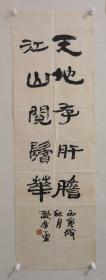 天地存肝膽
江山閱鬢華
丙寅歲
秋月